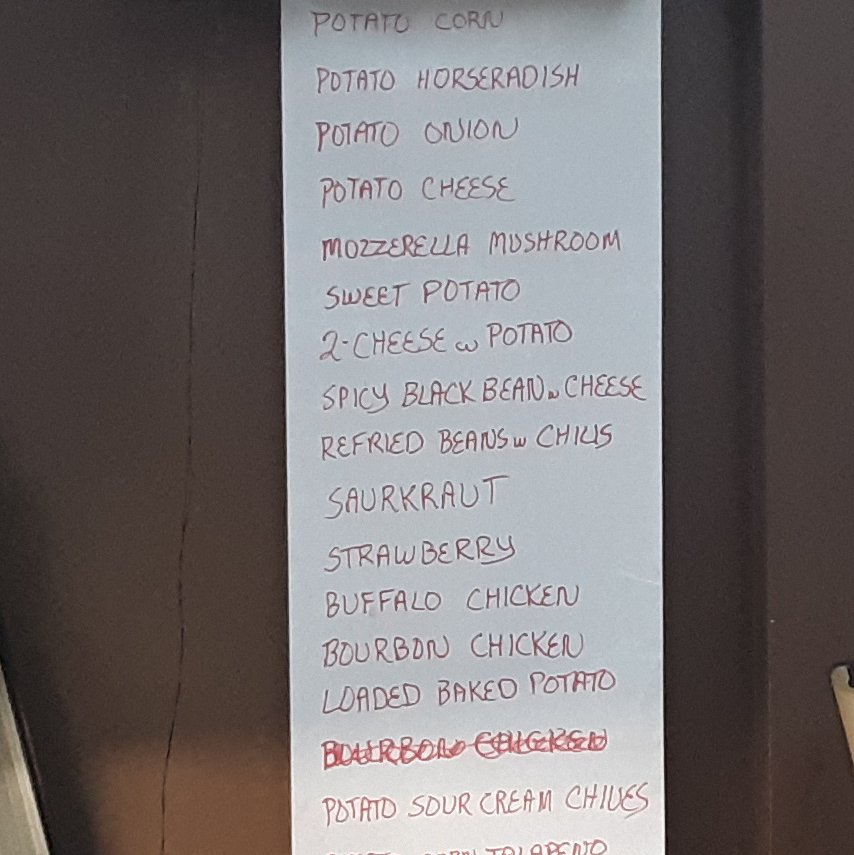 POTATO CORN
POTATO HORSERADISH
POTATO ONION
POTATO CHEESE
MOZZERELLA MUSHROOM
SWEET POTATO
2-CHEESE w POTATO
SPICY BLACK BEAN w CHEESE
REFRIED BEANS w CHILIS
SAURKRAUT
STRAWBERRY
BUFFALO CHICKEN
BOURBON CHICKEN
LOADED BAKED POTATO
BOURBON CHICKEN
POTATO SOUR CREAM CHIVES
JALAPENO